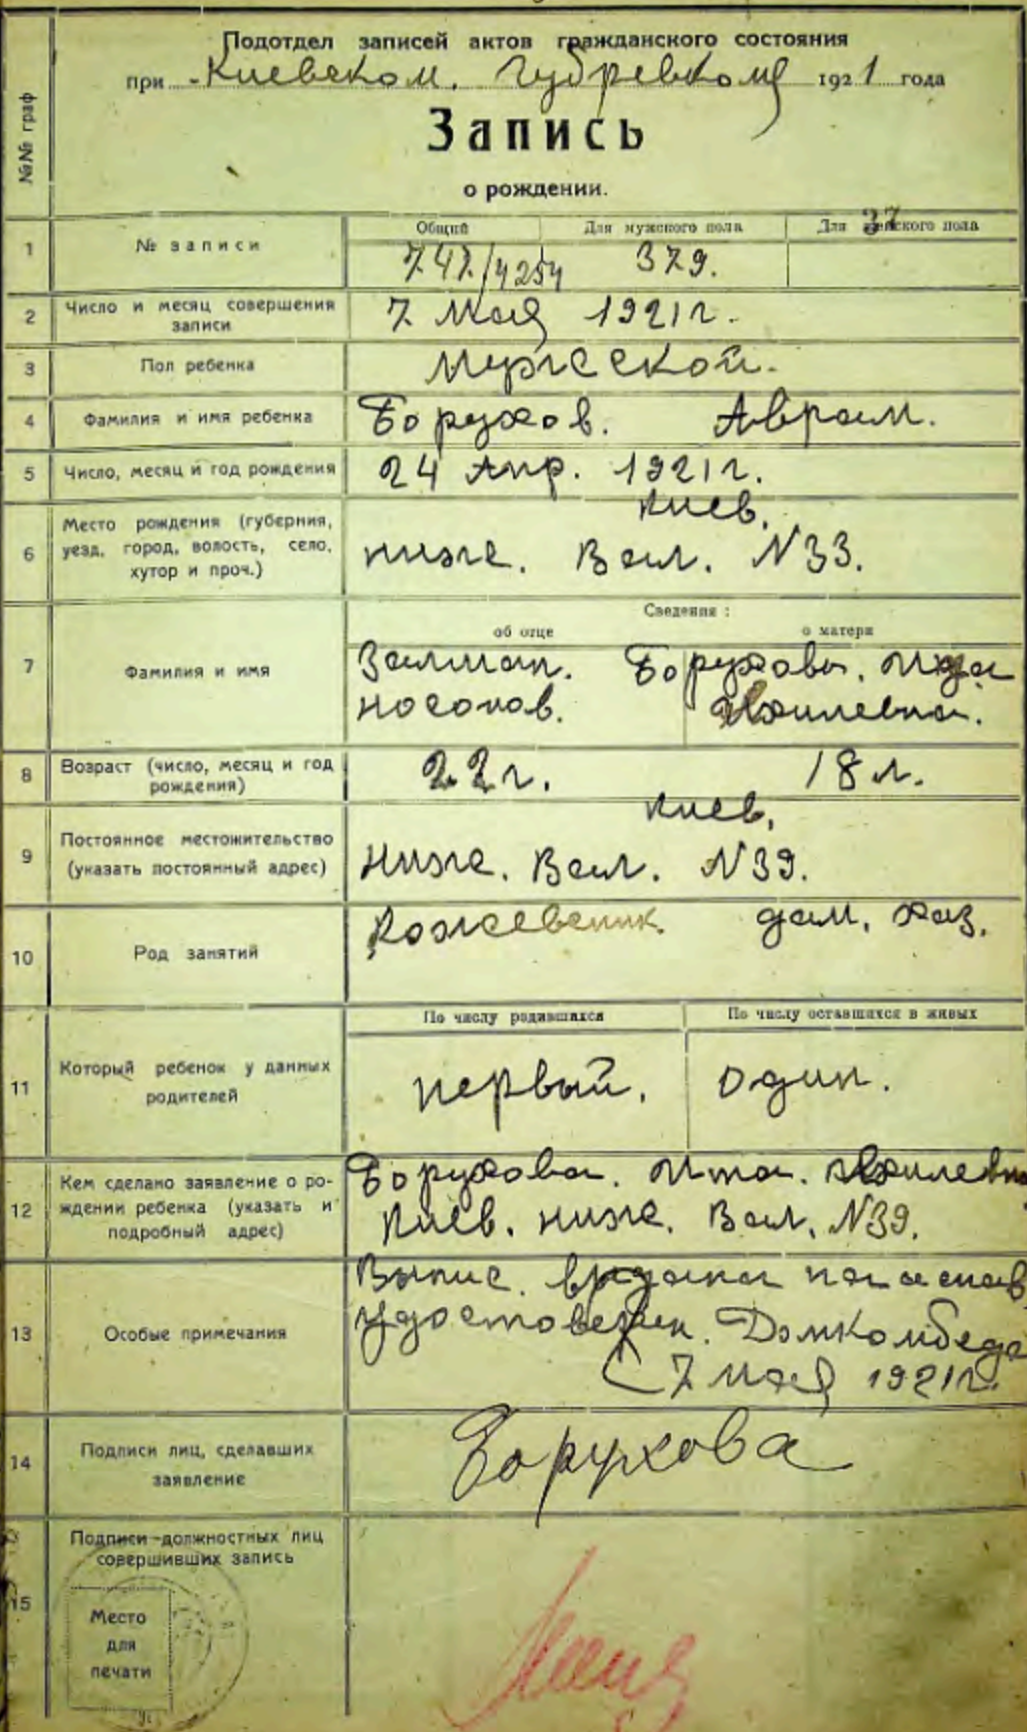 Подотдел записей актов гражданского состояния
при Киевском. Губревкоме 1921 года
Запись
о рождении.
№№ граф
1 № записи
Общий Для мужского пола Для женского пола
37
747/4254 379.
2 Число и месяц совершения записи
7 Мая 1921 г.
3 Пол ребенка
Мужеской.
4 Фамилия и имя ребенка
Борухов. Аврам.
5 Число, месяц и год рождения
24 Апр. 1921 г.
6 Место рождения (губерния,
уезд, город, волость, село,
хутор и проч.)
Киев.
Ниже. Вал. N33.
Сведения:
об отце о матери
7 Фамилия и имя
Залман. Борухова.
Носонов.
8 Возраст (число, месяц и год
рождения)
22 г. 18 л.
9 Постоянное местожительство
(указать постоянный адрес)
Киев.
Ниже. Вал. N39.
10 Род занятий
Кожевеник. дом. хоз.
По числу родившихся По числу оставшихся в живых
11 Который ребенок у данных
родителей
Первый. Один.
12 Кем сделано заявление о ро-
ждении ребенка (указать и
подробный адрес)
Борухова. Ита.
Киев. Ниже. Вал. N39.
13 Особые примечания
Выпис.
удостоверен. Домкомбеда
7 мая 1921 г.
14 Подписи лиц, сделавших
заявление
Борухова
15 Подписи должностных лиц
совершивших запись
Место
для
печати